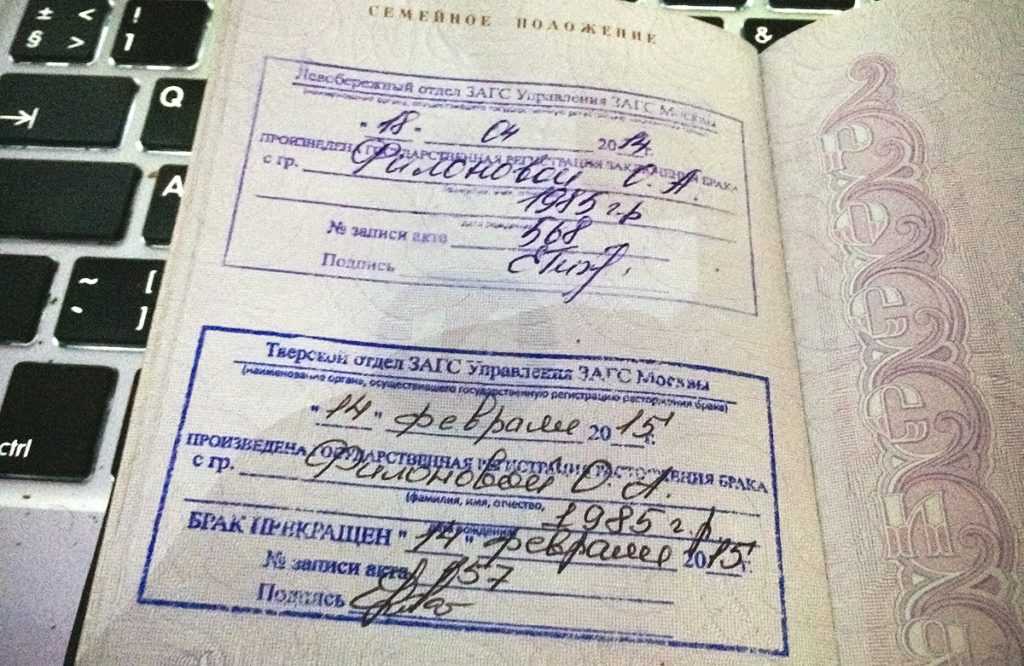 ± <
§ >
!
1
&
Q
A
~ [
` ]
ctrl
СЕМЕЙНОЕ ПОЛОЖЕНИЕ
Левобережный отдел ЗАГС Управления ЗАГС Москвы
"18" 04 2014г.
ПРОИЗВЕДЕНА ГОСУДАРСТВЕННАЯ РЕГИСТРАЦИЯ ЗАКЛЮЧЕНИЯ БРАКА
с гр. Филоновой О. А.
1985 г.р
№ записи акта 568
Подпись
Тверской отдел ЗАГС Управления ЗАГС Москвы
(наименование органа, осуществившего государственную регистрацию расторжения брака)
"14" февраля 2015г.
ПРОИЗВЕДЕНА ГОСУДАРСТВЕННАЯ РЕГИСТРАЦИЯ РАСТОРЖЕНИЯ БРАКА
с гр. Филоновой О. А.
(фамилия, имя, отчество,
дата рождения) 1985 г.р
БРАК ПРЕКРАЩЕН "14" февраля 2015г.
№ записи акта 157
Подпись
РОССИЯ